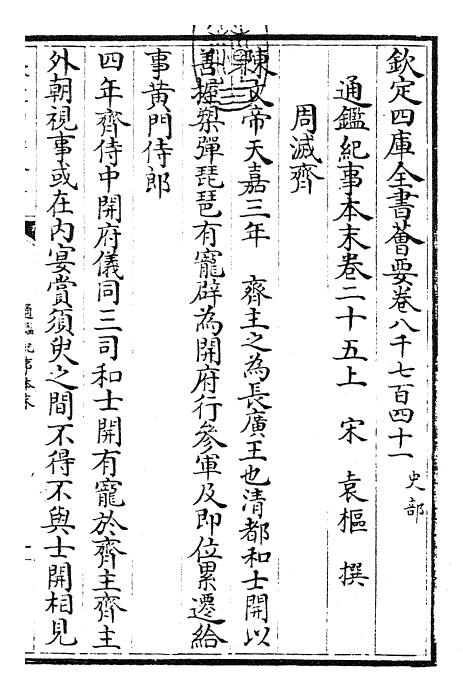 欽定四庫全書薈要卷八千七百四十一 史部
通鑑紀事本末卷二十五上 宋 袁樞 撰
周滅齊
陳文帝天嘉三年 齊主之為長廣王也清都和士開以
善握槊彈琵琶有寵辟為開府行參軍及即位累遷給
事黃門侍郎
四年齊侍中開府儀同三司和士開有寵於齊主齊主
外朝視事或在内宴賞須臾之間不得不與士開相見
通鑑紀事本末
一